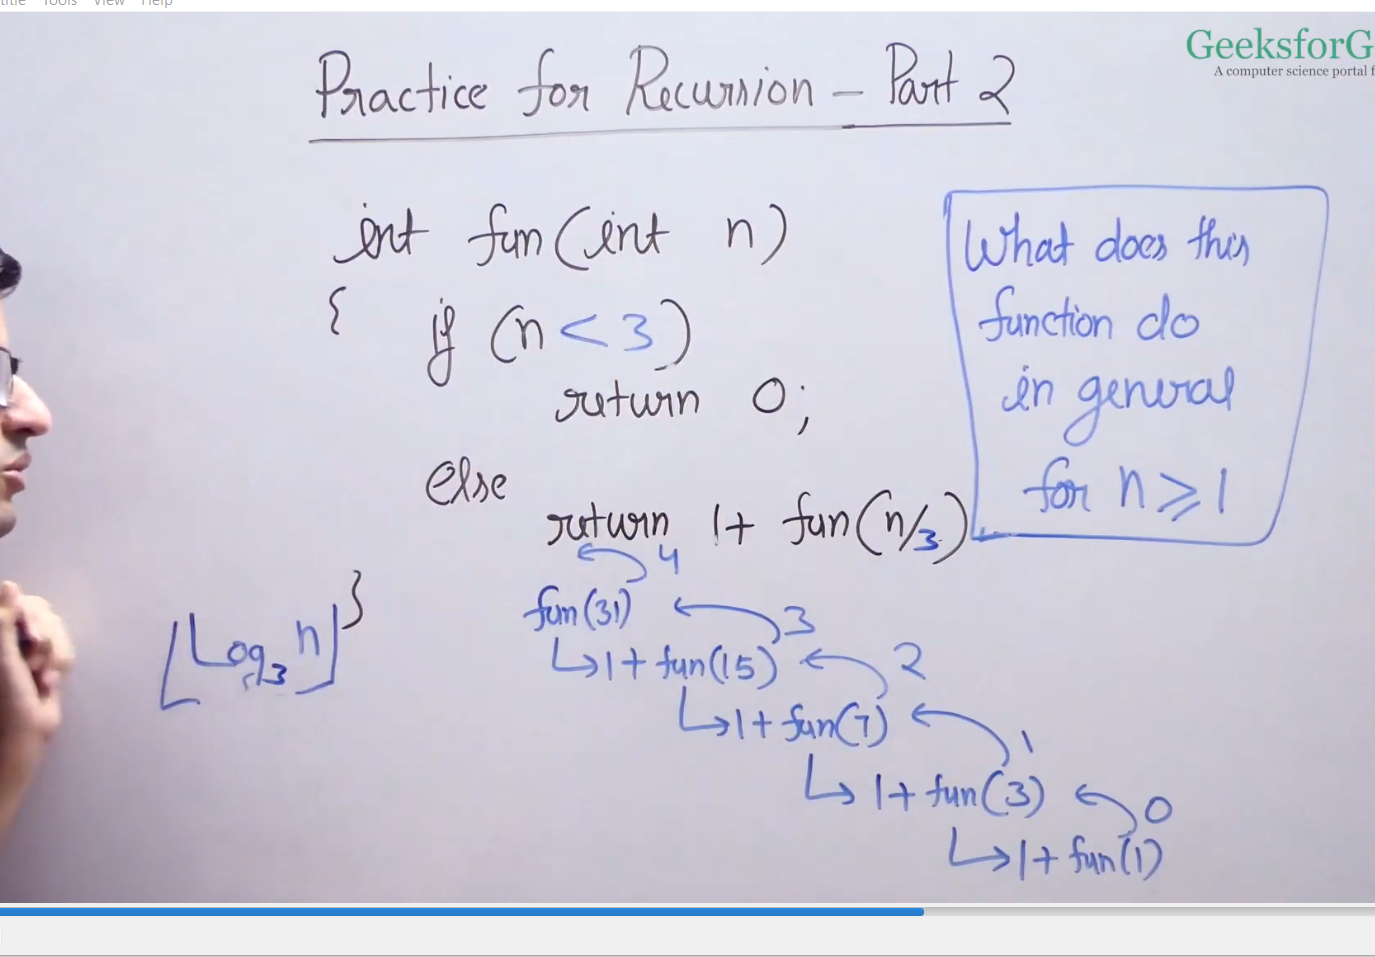 Title Tools View Help
GeeksforG
A computer science portal f
Practice for Recursion - Part 2
int fun(int n)
{ if (n < 3)
return 0;
else
return 1 + fun(n/3)
}
What does this
function do
in general
for n ≥ 1
⌊Log₃ n⌋
4
fun(31)
3
↳ 1 + fun(15)
2
↳ 1 + fun(7)
1
↳ 1 + fun(3)
0
↳ 1 + fun(1)